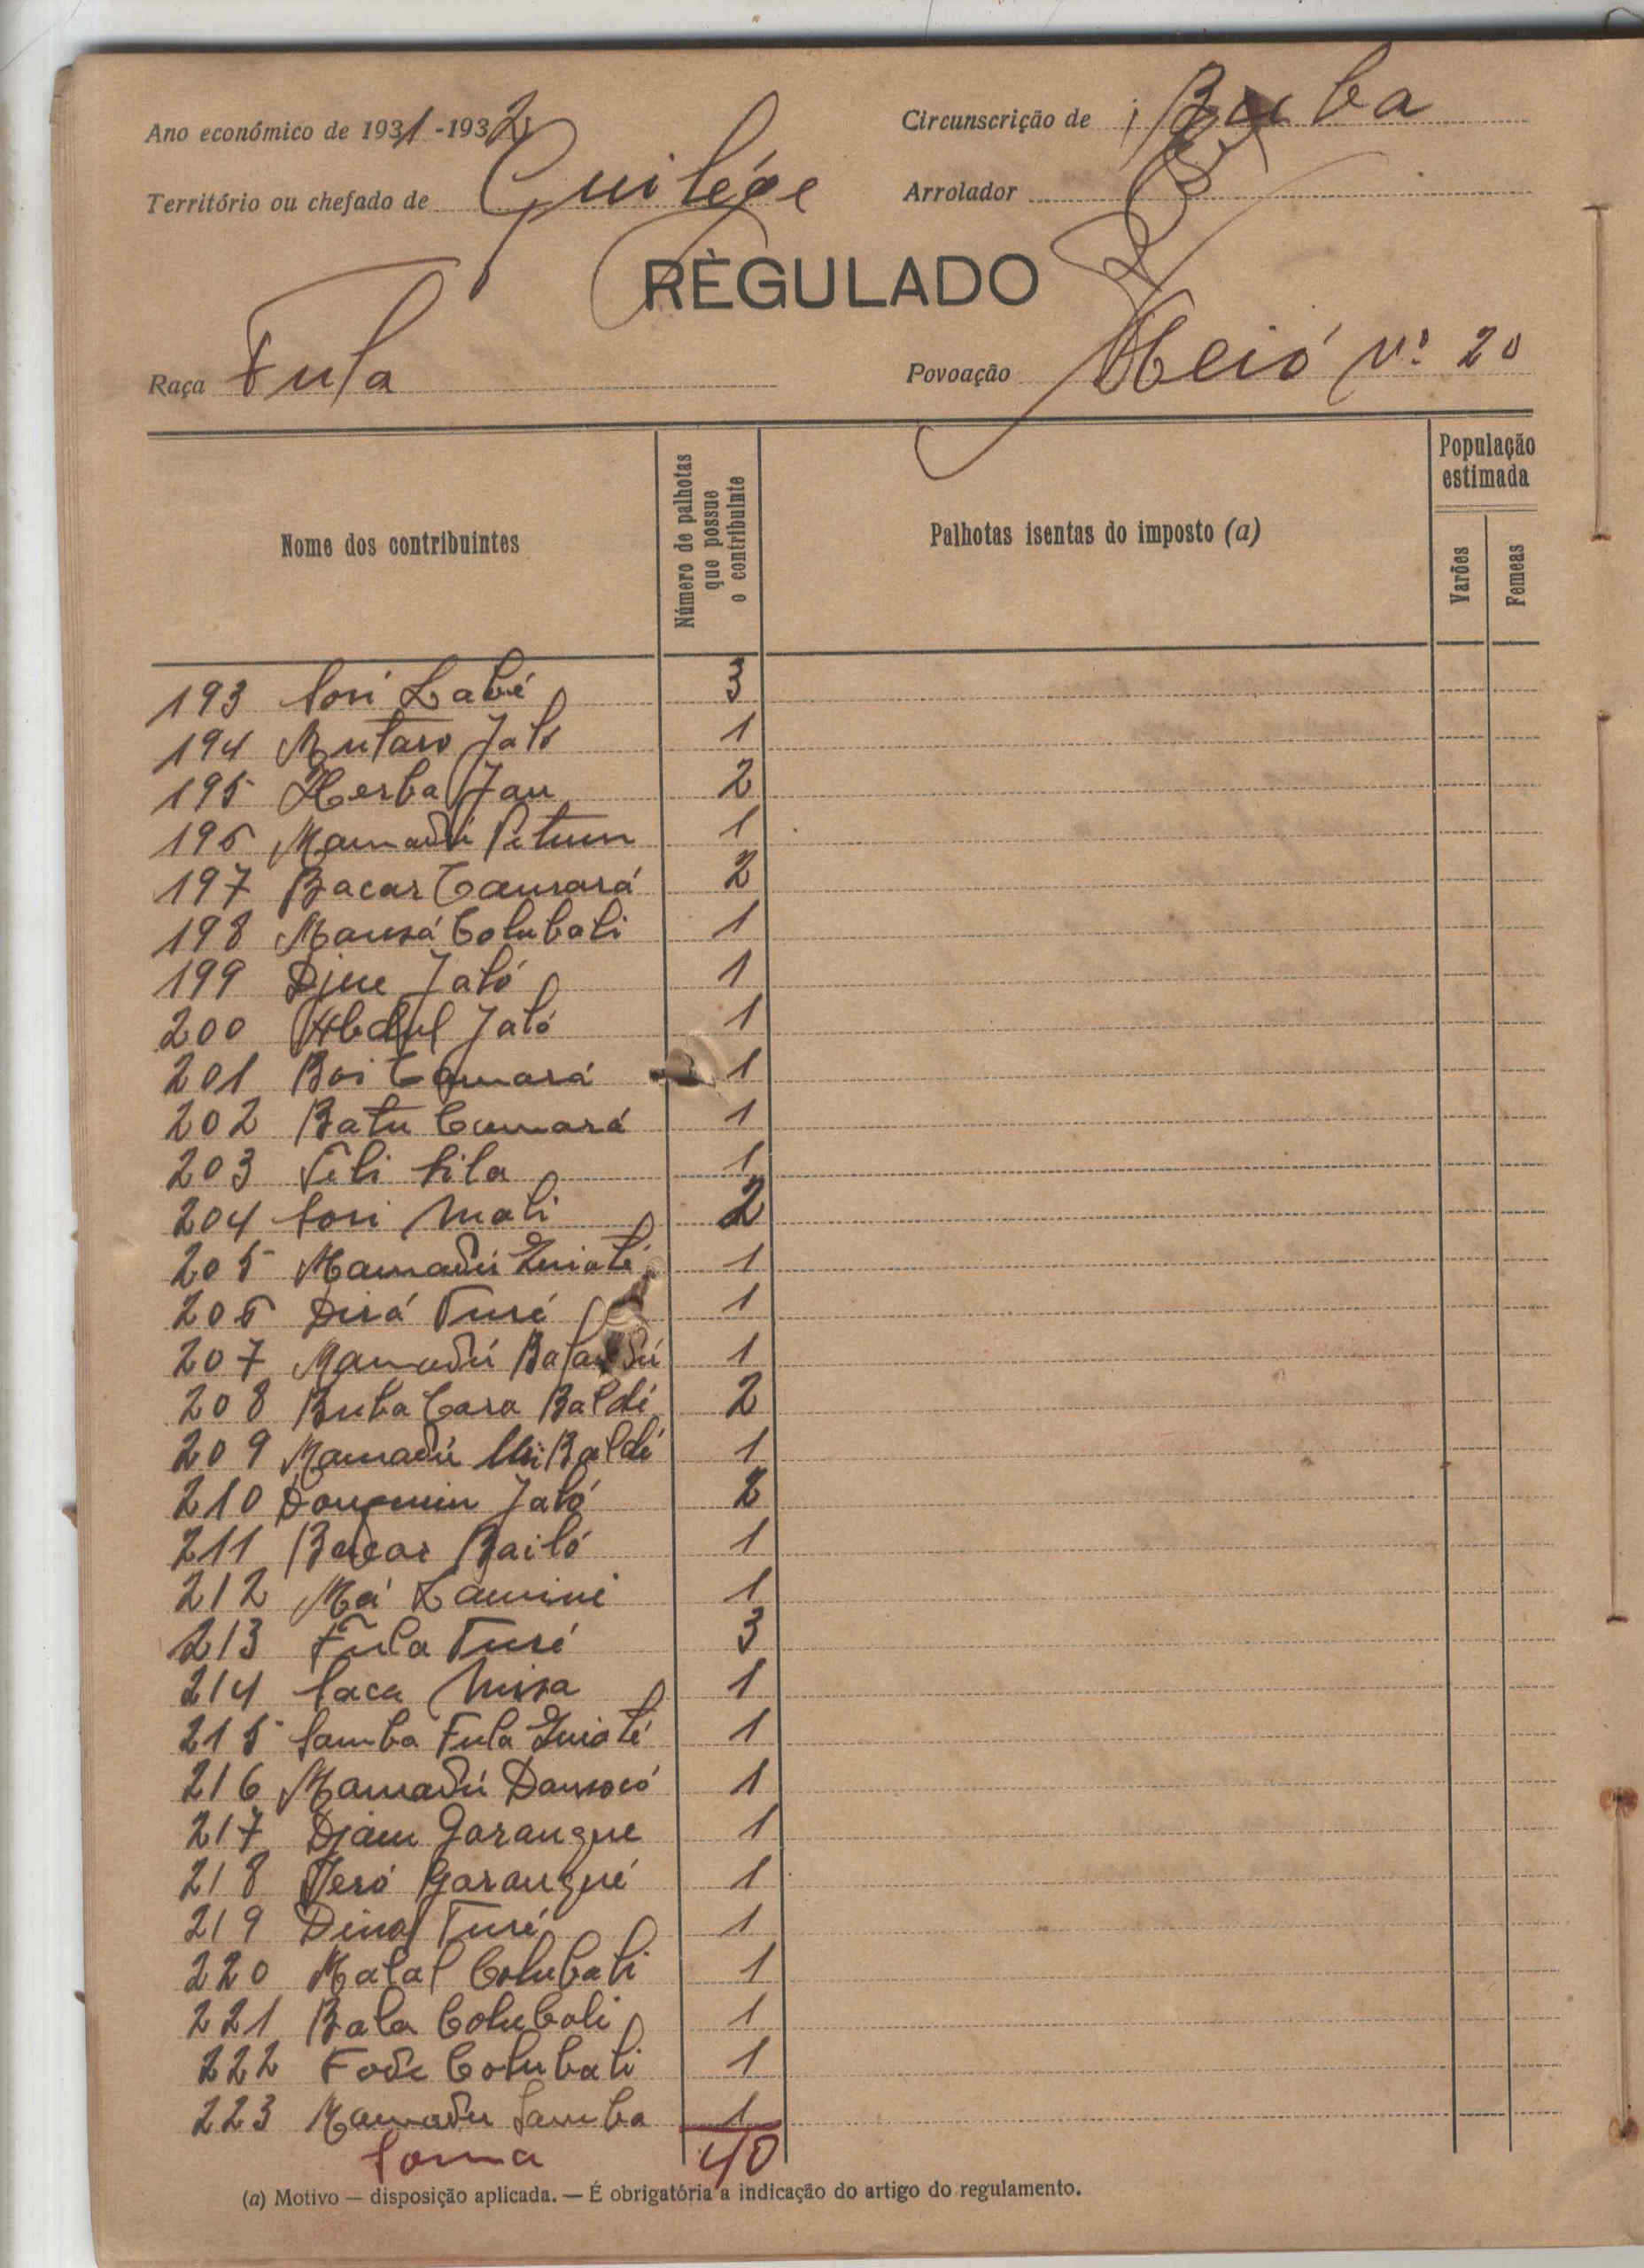 Ano económico de 1931-1932 Circunscrição de Buba
Território ou chefado de Guilége Arrolador
REGULADO
Raça Fula Povoação Meió nº 20
Nome dos contribuintes
Número de palhotas que possue o contribuinte
Palhotas isentas do imposto (a)
População estimada
Varões
Femeas
193 Sori Labé 3
194 Mutaro Jaló 1
195 Herba Jau 2
196 Mamadú 1
197 Bacar Camará 2
198 Mansá Colubali 1
199 Djue Jaló 1
200 Abdul Jaló 1
201 Boi Camará 1
202 Batu Camará 1
203 Sila 1
204 Sori Mali 2
205 Mamadú 1
206 Turé 1
207 Mamadú 1
208 Buba Cara Baldé 2
209 Mamadú Baldé 1
210 Jaló 2
211 Bailó 1
212 Má Lamini 1
213 Fula Turé 3
214 Saca 1
215 Samba Fula 1
216 Mamadú Dansocó 1
217 Djam Garangue 1
218 Garangué 1
219 Turé 1
220 Malal Colubali 1
221 Bala Colubali 1
222 Fode Colubali 1
223 Mamadu Samba 1
Soma 40
(a) Motivo — disposição aplicada. — É obrigatória a indicação do artigo do regulamento.